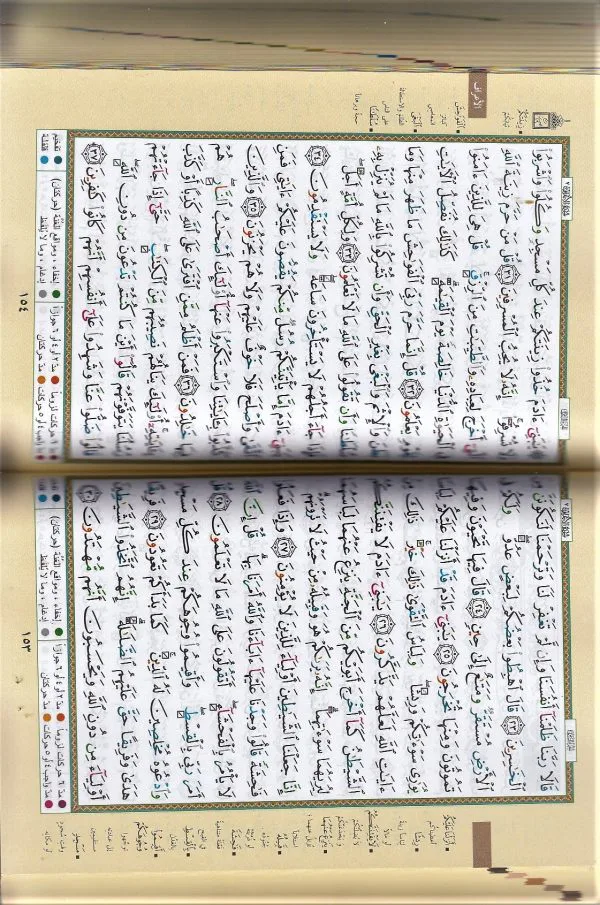 قَالَا رَبَّنَا ظَلَمْنَا أَنفُسَنَا وَإِن لَّمْ تَغْفِرْ لَنَا وَتَرْحَمْنَا لَنَكُونَنَّ مِنَ
ٱلْخَٰسِرِينَ ٢٣ قَالَ ٱهْبِطُوا۟ بَعْضُكُمْ لِبَعْضٍ عَدُوٌّ وَلَكُمْ فِى
ٱلْأَرْضِ مُسْتَقَرٌّ وَمَتَٰعٌ إِلَىٰ حِينٍ ٢٤ قَالَ فِيهَا تَحْيَوْنَ وَفِيهَا
تَمُوتُونَ وَمِنْهَا تُخْرَجُونَ ٢٥ يَٰبَنِىٓ ءَادَمَ قَدْ أَنزَلْنَا عَلَيْكُمْ لِبَاسًا
يُوَٰرِى سَوْءَٰتِكُمْ وَرِيشًا وَلِبَاسُ ٱلتَّقْوَىٰ ذَٰلِكَ خَيْرٌ ذَٰلِكَ مِنْ
ءَايَٰتِ ٱللَّهِ لَعَلَّهُمْ يَذَّكَّرُونَ ٢٦ يَٰبَنِىٓ ءَادَمَ لَا يَفْتِنَنَّكُمُ
ٱلشَّيْطَٰنُ كَمَآ أَخْرَجَ أَبَوَيْكُم مِّنَ ٱلْجَنَّةِ يَنزِعُ عَنْهُمَا لِبَاسَهُمَا
لِيُرِيَهُمَا سَوْءَٰتِهِمَآ إِنَّهُۥ يَرَىٰكُمْ هُوَ وَقَبِيلُهُۥ مِنْ حَيْثُ لَا تَرَوْنَهُمْ
إِنَّا جَعَلْنَا ٱلشَّيَٰطِينَ أَوْلِيَآءَ لِلَّذِينَ لَا يُؤْمِنُونَ ٢٧ وَإِذَا فَعَلُوا۟
فَٰحِشَةً قَالُوا۟ وَجَدْنَا عَلَيْهَآ ءَابَآءَنَا وَٱللَّهُ أَمَرَنَا بِهَا قُلْ إِنَّ ٱللَّهَ
لَا يَأْمُرُ بِٱلْفَحْشَآءِ أَتَقُولُونَ عَلَى ٱللَّهِ مَا لَا تَعْلَمُونَ ٢٨ قُلْ
أَمَرَ رَبِّى بِٱلْقِسْطِ وَأَقِيمُوا۟ وُجُوهَكُمْ عِندَ كُلِّ مَسْجِدٍ
وَٱدْعُوهُ مُخْلِصِينَ لَهُ ٱلدِّينَ كَمَا بَدَأَكُمْ تَعُودُونَ ٢٩ فَرِيقًا
هَدَىٰ وَفَرِيقًا حَقَّ عَلَيْهِمُ ٱلضَّلَٰلَةُ إِنَّهُمُ ٱتَّخَذُوا۟ ٱلشَّيَٰطِينَ
أَوْلِيَآءَ مِن دُونِ ٱللَّهِ وَيَحْسَبُونَ أَنَّهُم مُّهْتَدُونَ ٣٠
١٥٣
الأعراف
يَٰبَنِىٓ ءَادَمَ خُذُوا۟ زِينَتَكُمْ عِندَ كُلِّ مَسْجِدٍ وَكُلُوا۟ وَٱشْرَبُوا۟
وَلَا تُسْرِفُوٓا۟ إِنَّهُۥ لَا يُحِبُّ ٱلْمُسْرِفِينَ ٣١ قُلْ مَنْ حَرَّمَ زِينَةَ ٱللَّهِ
ٱلَّتِىٓ أَخْرَجَ لِعِبَادِهِۦ وَٱلطَّيِّبَٰتِ مِنَ ٱلرِّزْقِ قُلْ هِىَ لِلَّذِينَ ءَامَنُوا۟
فِى ٱلْحَيَوٰةِ ٱلدُّنْيَا خَالِصَةً يَوْمَ ٱلْقِيَٰمَةِ كَذَٰلِكَ نُفَصِّلُ ٱلْءَايَٰتِ
لِقَوْمٍ يَعْلَمُونَ ٣٢ قُلْ إِنَّمَا حَرَّمَ رَبِّىَ ٱلْفَوَٰحِشَ مَا ظَهَرَ مِنْهَا وَمَا
بَطَنَ وَٱلْإِثْمَ وَٱلْبَغْىَ بِغَيْرِ ٱلْحَقِّ وَأَن تُشْرِكُوا۟ بِٱللَّهِ مَا لَمْ يُنَزِّلْ بِهِۦ
سُلْطَٰنًا وَأَن تَقُولُوا۟ عَلَى ٱللَّهِ مَا لَا تَعْلَمُونَ ٣٣ وَلِكُلِّ أُمَّةٍ أَجَلٌ
فَإِذَا جَآءَ أَجَلُهُمْ لَا يَسْتَأْخِرُونَ سَاعَةً وَلَا يَسْتَقْدِمُونَ ٣٤
يَٰبَنِىٓ ءَادَمَ إِمَّا يَأْتِيَنَّكُمْ رُسُلٌ مِّنكُمْ يَقُصُّونَ عَلَيْكُمْ ءَايَٰتِى فَمَنِ
ٱتَّقَىٰ وَأَصْلَحَ فَلَا خَوْفٌ عَلَيْهِمْ وَلَا هُمْ يَحْزَنُونَ ٣٥ وَٱلَّذِينَ
كَذَّبُوا۟ بِـَٔايَٰتِنَا وَٱسْتَكْبَرُوا۟ عَنْهَآ أُو۟لَٰٓئِكَ أَصْحَٰبُ ٱلنَّارِ هُمْ
فِيهَا خَٰلِدُونَ ٣٦ فَمَنْ أَظْلَمُ مِمَّنِ ٱفْتَرَىٰ عَلَى ٱللَّهِ كَذِبًا أَوْ كَذَّبَ
بِـَٔايَٰتِهِۦٓ أُو۟لَٰٓئِكَ يَنَالُهُمْ نَصِيبُهُم مِّنَ ٱلْكِتَٰبِ حَتَّىٰٓ إِذَا جَآءَتْهُمْ
رُسُلُنَا يَتَوَفَّوْنَهُمْ قَالُوٓا۟ أَيْنَ مَا كُنتُمْ تَدْعُونَ مِن دُونِ ٱللَّهِ
قَالُوا۟ ضَلُّوا۟ عَنَّا وَشَهِدُوا۟ عَلَىٰٓ أَنفُسِهِمْ أَنَّهُمْ كَانُوا۟ كَٰفِرِينَ ٣٧
مدّ ٦ حركات لزوماً
مدّ ٢ أو ٤ أو ٦ جوازاً
إخفاء، ومواقع الغُنّة (حركتان)
تفخيم
مدّ واجب ٤ أو ٥ حركات
مدّ حركتان
إدغام، وما لا يُلفظ
قلقلة
١٥٤